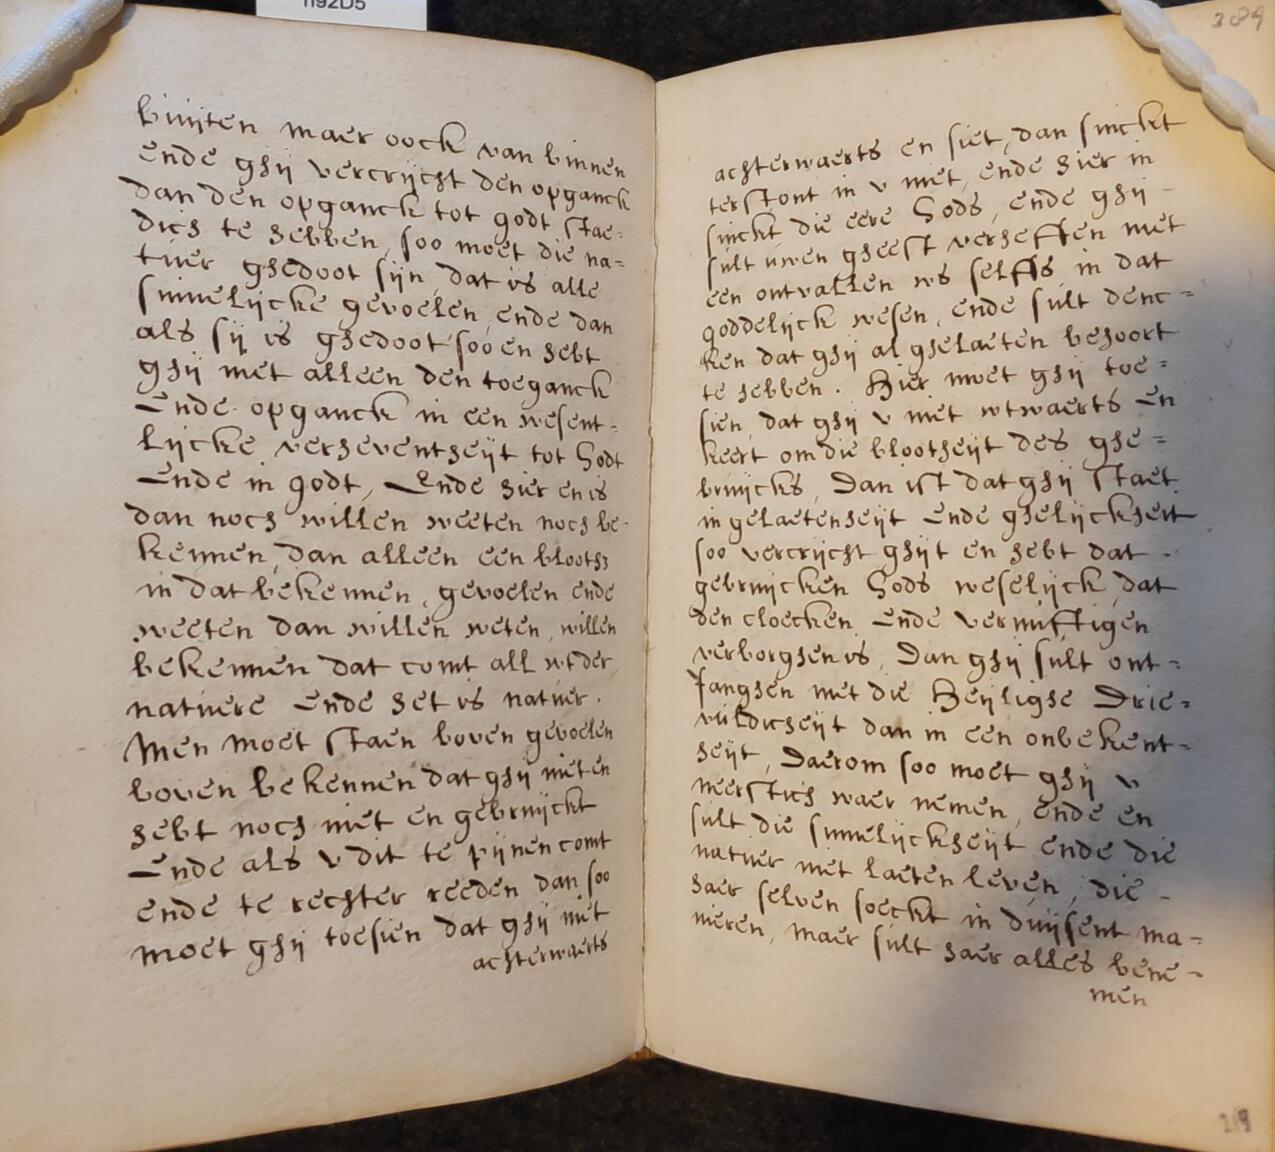 h92D5
buijten maer oock van binnen
ende ghij vercrijcht den opganck
dan den opganck tot godt stae=
dich te hebben, soo moet die na=
tuer ghedoot sijn, dat is alle
sinnelijcke gevoelen, ende dan
als sij is ghedoot soo en hebt
ghij niet alleen den toeganck
Ende opganck in een wesent=
lijcke verheventheijt tot Godt
Ende in godt, Ende hier en is
dan noch willen weeten noch be-
kennen, dan alleen een blooth
in dat bekennen, gevoelen ende
weeten dan willen weten, willen
bekennen dat comt all wt der
natuere Ende het is natuer.
Men moet staen boven gevoelen
boven bekennen dat ghij niet en
hebt noch niet en gebruijckt
Ende als v dit te pijnen comt
ende te rechter reeden dan soo
moet ghij toesien dat ghij niet
achterwaerts
achterwaerts en siet, dan sinckt
terstont in v niet, ende hier in
sinckt die eere Gods, ende ghij -
sult uwen gheest verheffen met
een ontvallen ws selffs in dat
goddelijck wesen, ende sult denc=
ken dat ghij al ghelaeten behoort
te hebben. Hier moet ghij toe=
sien, dat ghij v niet wtwaerts En
keert om die blootheijt des ghe=
bruijcks, Dan ist dat ghij staet
in gelaetenheijt Ende ghelijckheit
soo vercrijcht ghijt en hebt dat -
gebruijcken Gods weselijck, dat
den cloecken Ende vernuftigen
verborghen is, Dan ghij sult ont=
fanghen met die Heijlighe Drie=
vuldicheijt dan in een onbekent=
heijt, Daerom soo moet ghij v
neerstich waer nemen, ende en
sult die sinnelijckheijt ende die
natuer niet laeten leven, die -
haer selven soeckt in duijsent ma=
nieren, maer sult haer alles bene=
men
219